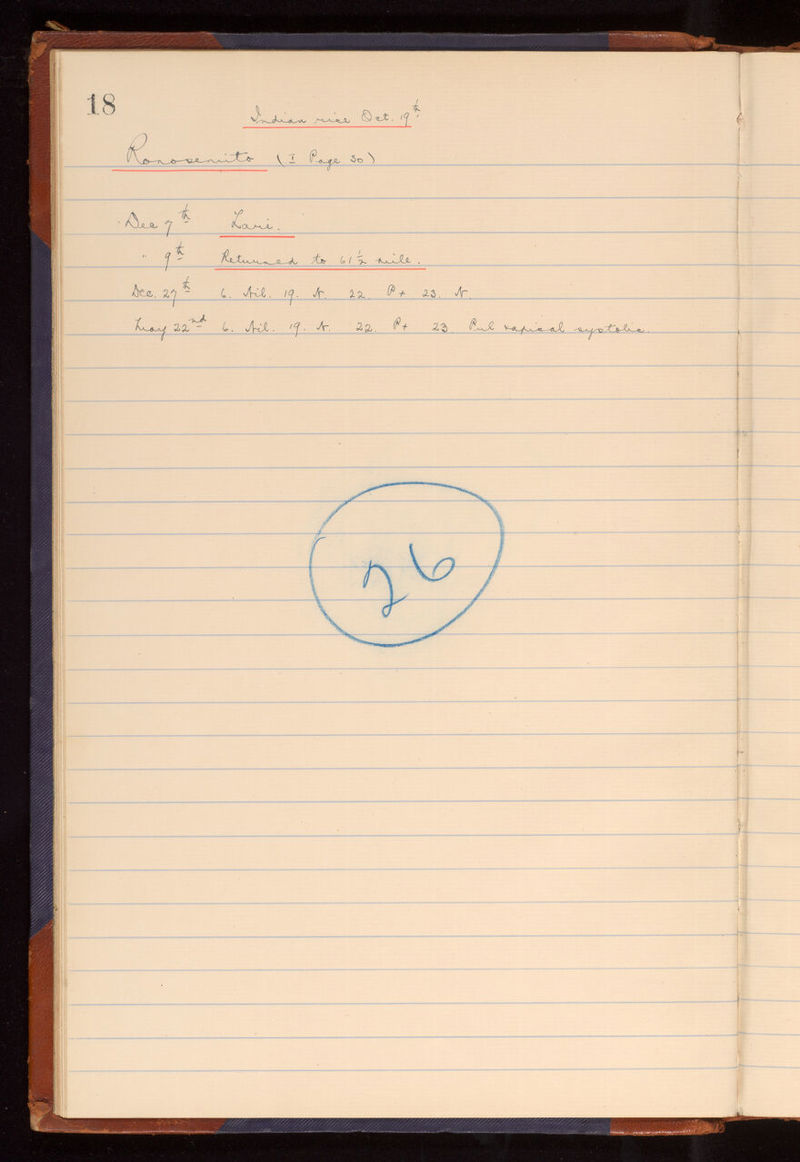 18
Indian rice Oct. 19th
Ronosemito (I Page 30)
Dec 7th Lari.
" 9th Returned to 61 1/2 mile.
Dec. 27th 6. Nil. 19. N. 22. P+ 23. N.
May 22nd 6. Nil. 19. N. 22. P+ 23 Pul & apical systolic.
26